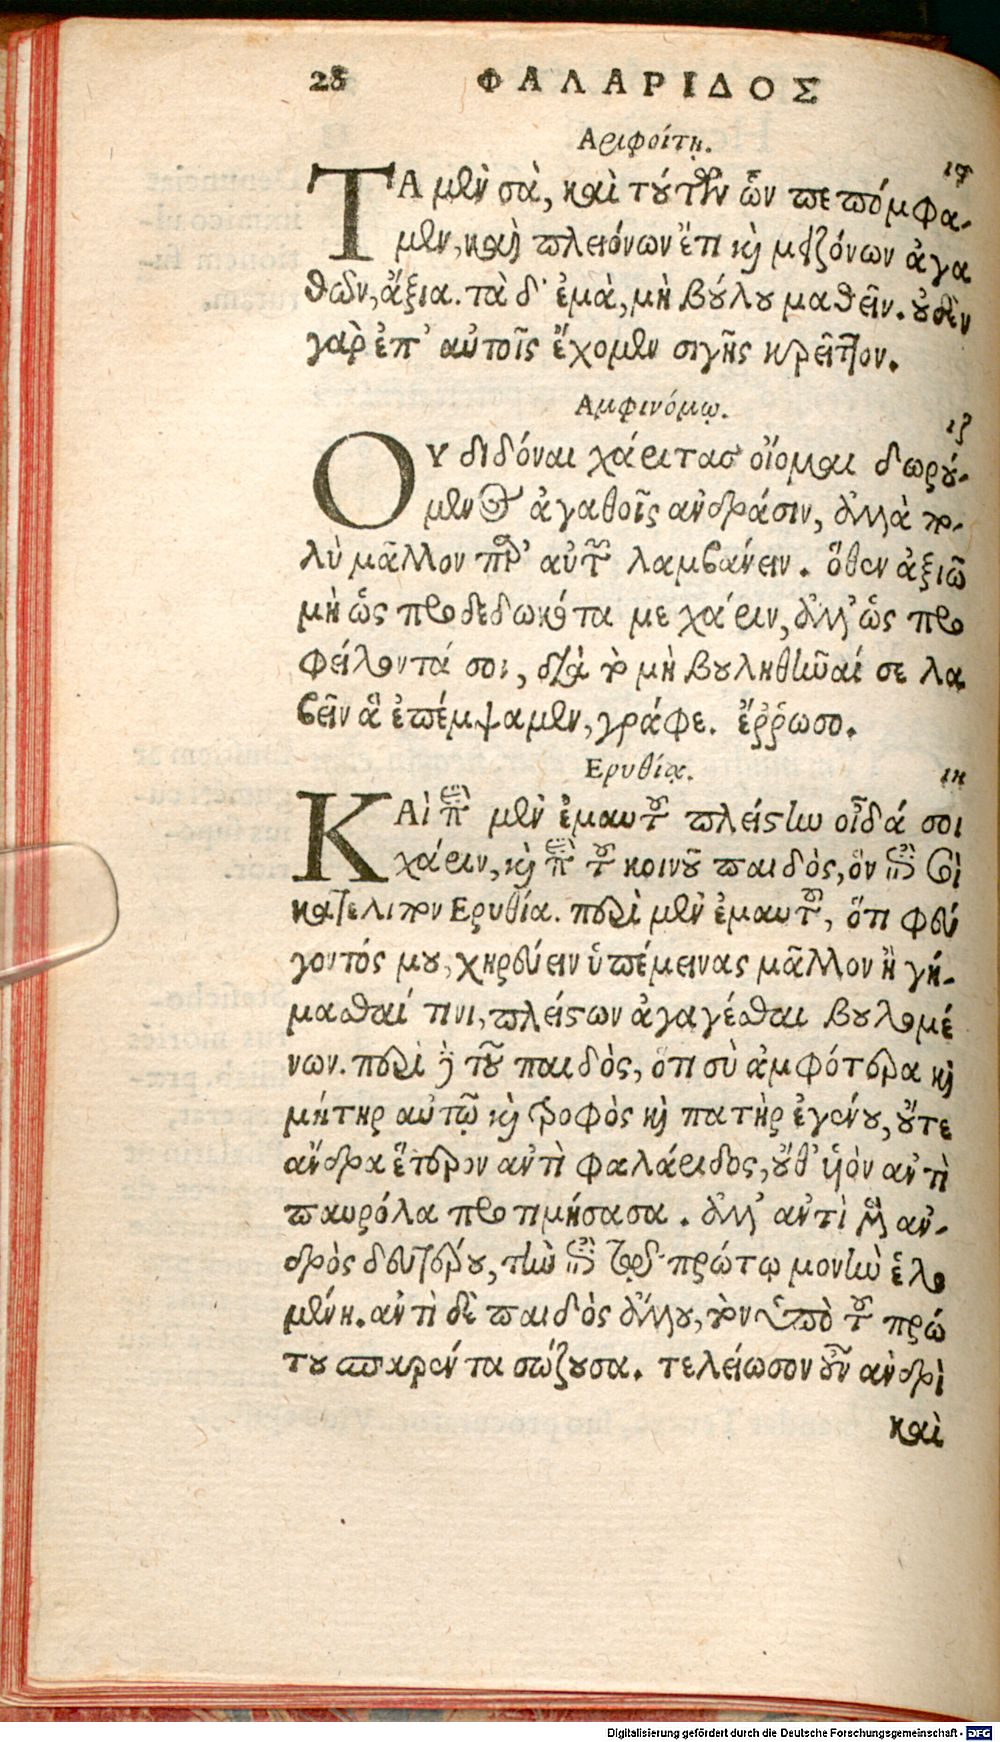 28 ΦΑΛΑΡΙΔΟΣ
Αριφοίτῃ. ις
ΤΑ μὲν σὰ, καὶ τούτων ὧν πεπόμφα-
μεν, καὶ πλειόνων ἔτι καὶ μειζόνων ἀγα
θῶν, ἄξια. τὰ δ᾽ ἐμὰ, μὴ βούλου μαθεῖν. οὐδὲν
γὰρ ἐπ᾽ αὐτοῖς ἔχομεν σιγῆς κρεῖττον.
Αμφινόμῳ. ιζ
ΟΥ διδόναι χάριτας οἴομαι δωρού-
μενος ἀγαθοῖς ἀνδράσιν, ἀλλὰ πο-
λὺ μᾶλλον παρ᾽ αὐτῶν λαμβάνειν. ὅθεν ἀξιῶ
μὴ ὡς προδεδωκότα με χάριν, ἀλλ᾽ ὡς προ
φείλοντά σοι, διὰ τὸ μὴ βουληθῆναί σε λα
βεῖν ἃ ἐπέμψαμεν, γράφε. ἔῤῥωσο.
Ερυθίᾳ. ιη
ΚΑὶ περὶ μὲν ἐμαυτοῦ πλείστην οἶδά σοι
χάριν, καὶ περὶ τοῦ κοινοῦ παιδὸς, ὃν ἐπὶ σοὶ
κατέλιπον Ερυθία. περὶ μὲν ἐμαυτοῦ, ὅτι φεύ
γοντός μου, χηρεύειν ὑπέμεινας μᾶλλον ἢ γή-
μασθαί τινι, πλείστων ἀγαγέσθαι βουλομέ
νων. περὶ δὲ τοῦ παιδὸς, ὅτι σὺ ἀμφότερα καὶ
μήτηρ αὐτῷ καὶ τροφὸς καὶ πατὴρ ἐγένου, οὔτε
ἄνδρα ἕτερον ἀντὶ φαλάριδος, οὔθ᾽ ὑὸν ἀντὶ
παυρόλα προτιμήσασα. ἀλλ᾽ ἀντὶ μὲν ἀν-
δρὸς δευτέρου, τὴν ἐπὶ τῷ πρώτῳ μονὴν ἑλο
μένη. ἀντὶ δὲ παιδὸς ἄλλου, τὸν ὑπὸ τοῦ πρώ
του παρέντα σώζουσα. τελείωσον οὖν ἀνδρὶ
καὶ
Digitalisierung gefördert durch die Deutsche Forschungsgemeinschaft - DFG